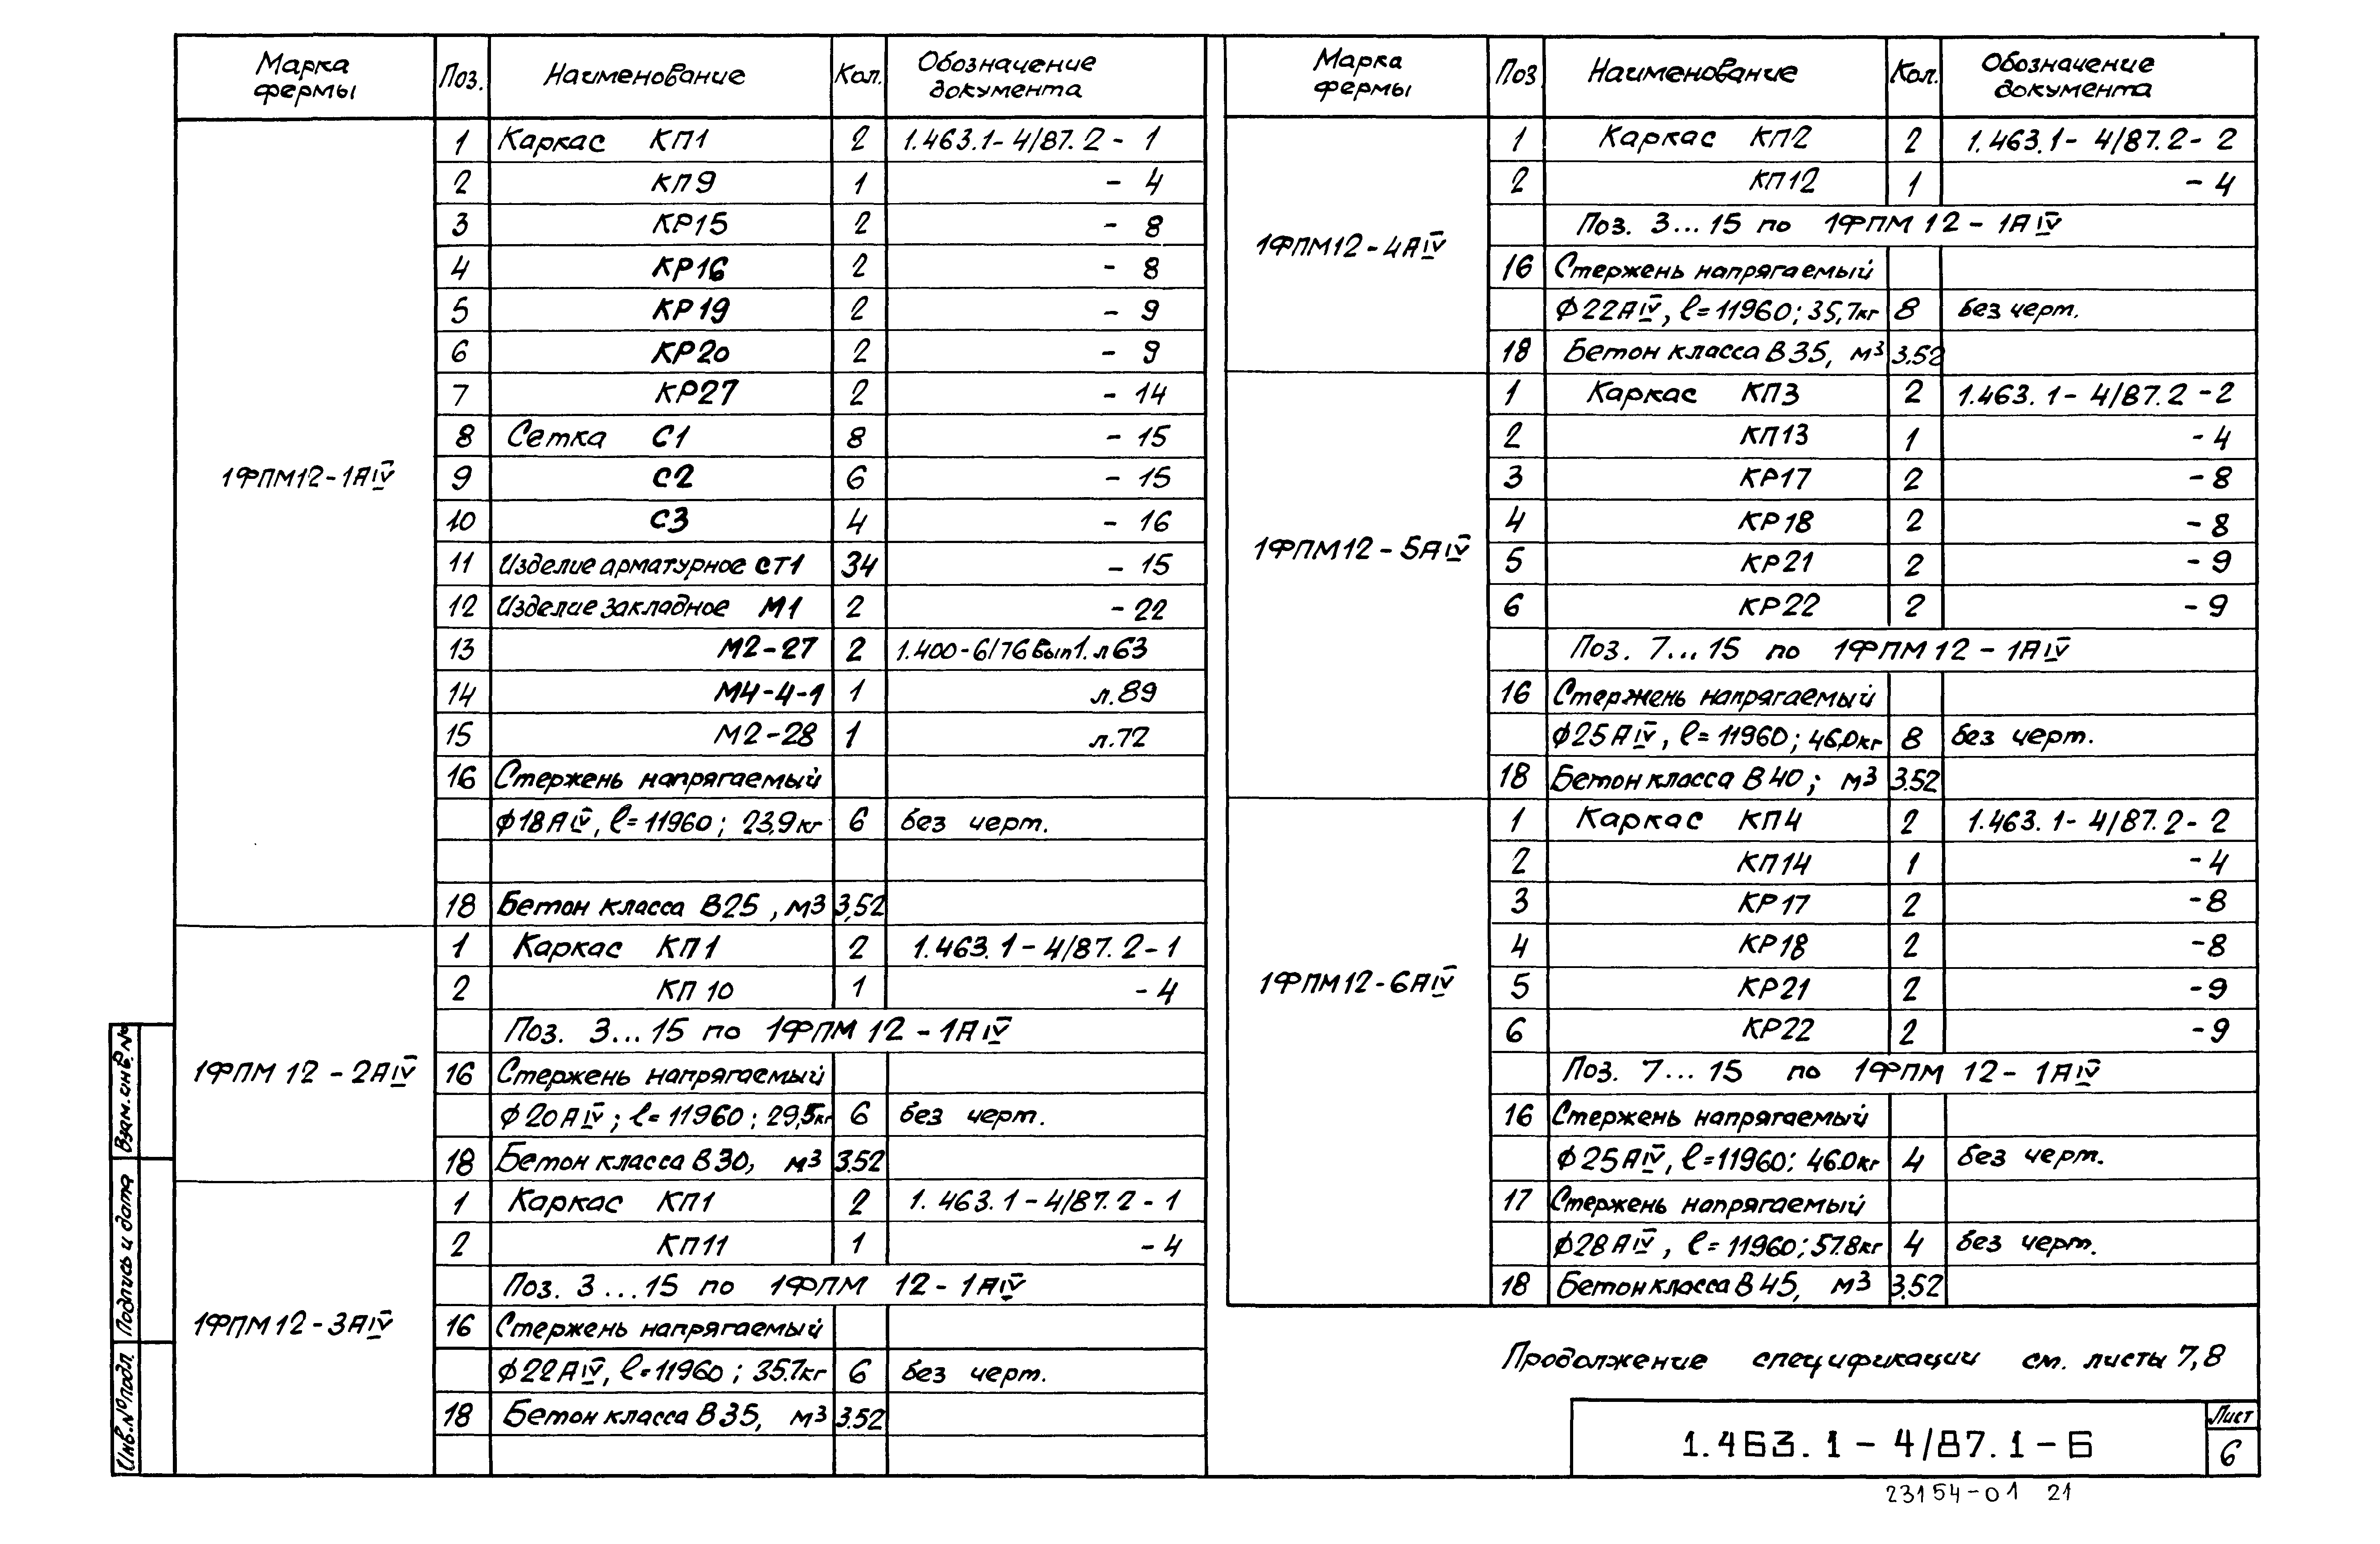 Марка фермы Поз. Наименование Кол. Обозначение документа
1ФПМ12-1АIV
1 Каркас КП1 2 1.463.1-4/87.2-1
2 КП9 1 -4
3 КР15 2 -8
4 КР16 2 -8
5 КР19 2 -9
6 КР20 2 -9
7 КР27 2 -14
8 Сетка С1 8 -15
9 С2 6 -15
10 С3 4 -16
11 Изделие арматурное СТ1 34 -15
12 Изделие закладное М1 2 -22
13 М2-27 2 1.400-6/76 Вып1. л63
14 М4-4-1 1 л.89
15 М2-28 1 л.72
16 Стержень напрягаемый
ф18АIV, l=11960; 23,9кг 6 без черт.
18 Бетон класса В25, м3 3,52
1ФПМ 12-2АIV
1 Каркас КП1 2 1.463.1-4/87.2-1
2 КП10 1 -4
Поз. 3...15 по 1ФПМ 12-1АIV
16 Стержень напрягаемый
ф20АIV; l=11960; 29,5кг 6 без черт.
18 Бетон класса В30, м3 3.52
1ФПМ12-3АIV
1 Каркас КП1 2 1.463.1-4/87.2-1
2 КП11 1 -4
Поз. 3...15 по 1ФПМ 12-1АIV
16 Стержень напрягаемый
ф22АIV, l=11960; 35.7кг 6 без черт.
18 Бетон класса В35, м3 3.52
Марка фермы Поз Наименование Кол. Обозначение документа
1ФПМ12-4АIV
1 Каркас КП2 2 1.463.1-4/87.2-2
2 КП12 1 -4
Поз. 3...15 по 1ФПМ12-1АIV
16 Стержень напрягаемый
ф22АIV, l=11960; 35,7кг 8 без черт.
18 Бетон класса В35, м3 3.52
1ФПМ12-5АIV
1 Каркас КП3 2 1.463.1-4/87.2-2
2 КП13 1 -4
3 КР17 2 -8
4 КР18 2 -8
5 КР21 2 -9
6 КР22 2 -9
Поз. 7...15 по 1ФПМ12-1АIV
16 Стержень напрягаемый
ф25АIV, l=11960; 46,0кг 8 без черт.
18 Бетон класса В40; м3 3.52
1ФПМ12-6АIV
1 Каркас КП4 2 1.463.1-4/87.2-2
2 КП14 1 -4
3 КР17 2 -8
4 КР18 2 -8
5 КР21 2 -9
6 КР22 2 -9
Поз. 7...15 по 1ФПМ 12-1АIV
16 Стержень напрягаемый
ф25АIV, l=11960; 46.0кг 4 без черт.
17 Стержень напрягаемый
ф28АIV, l=11960; 57.8кг 4 без черт.
18 Бетон класса В45, м3 3.52
Продолжение спецификации см. листы 7,8
1.463.1-4/87.1-6
Лист
6
23154-01 21
Взам.инв.№
Подпись и дата
Инв.№подл.